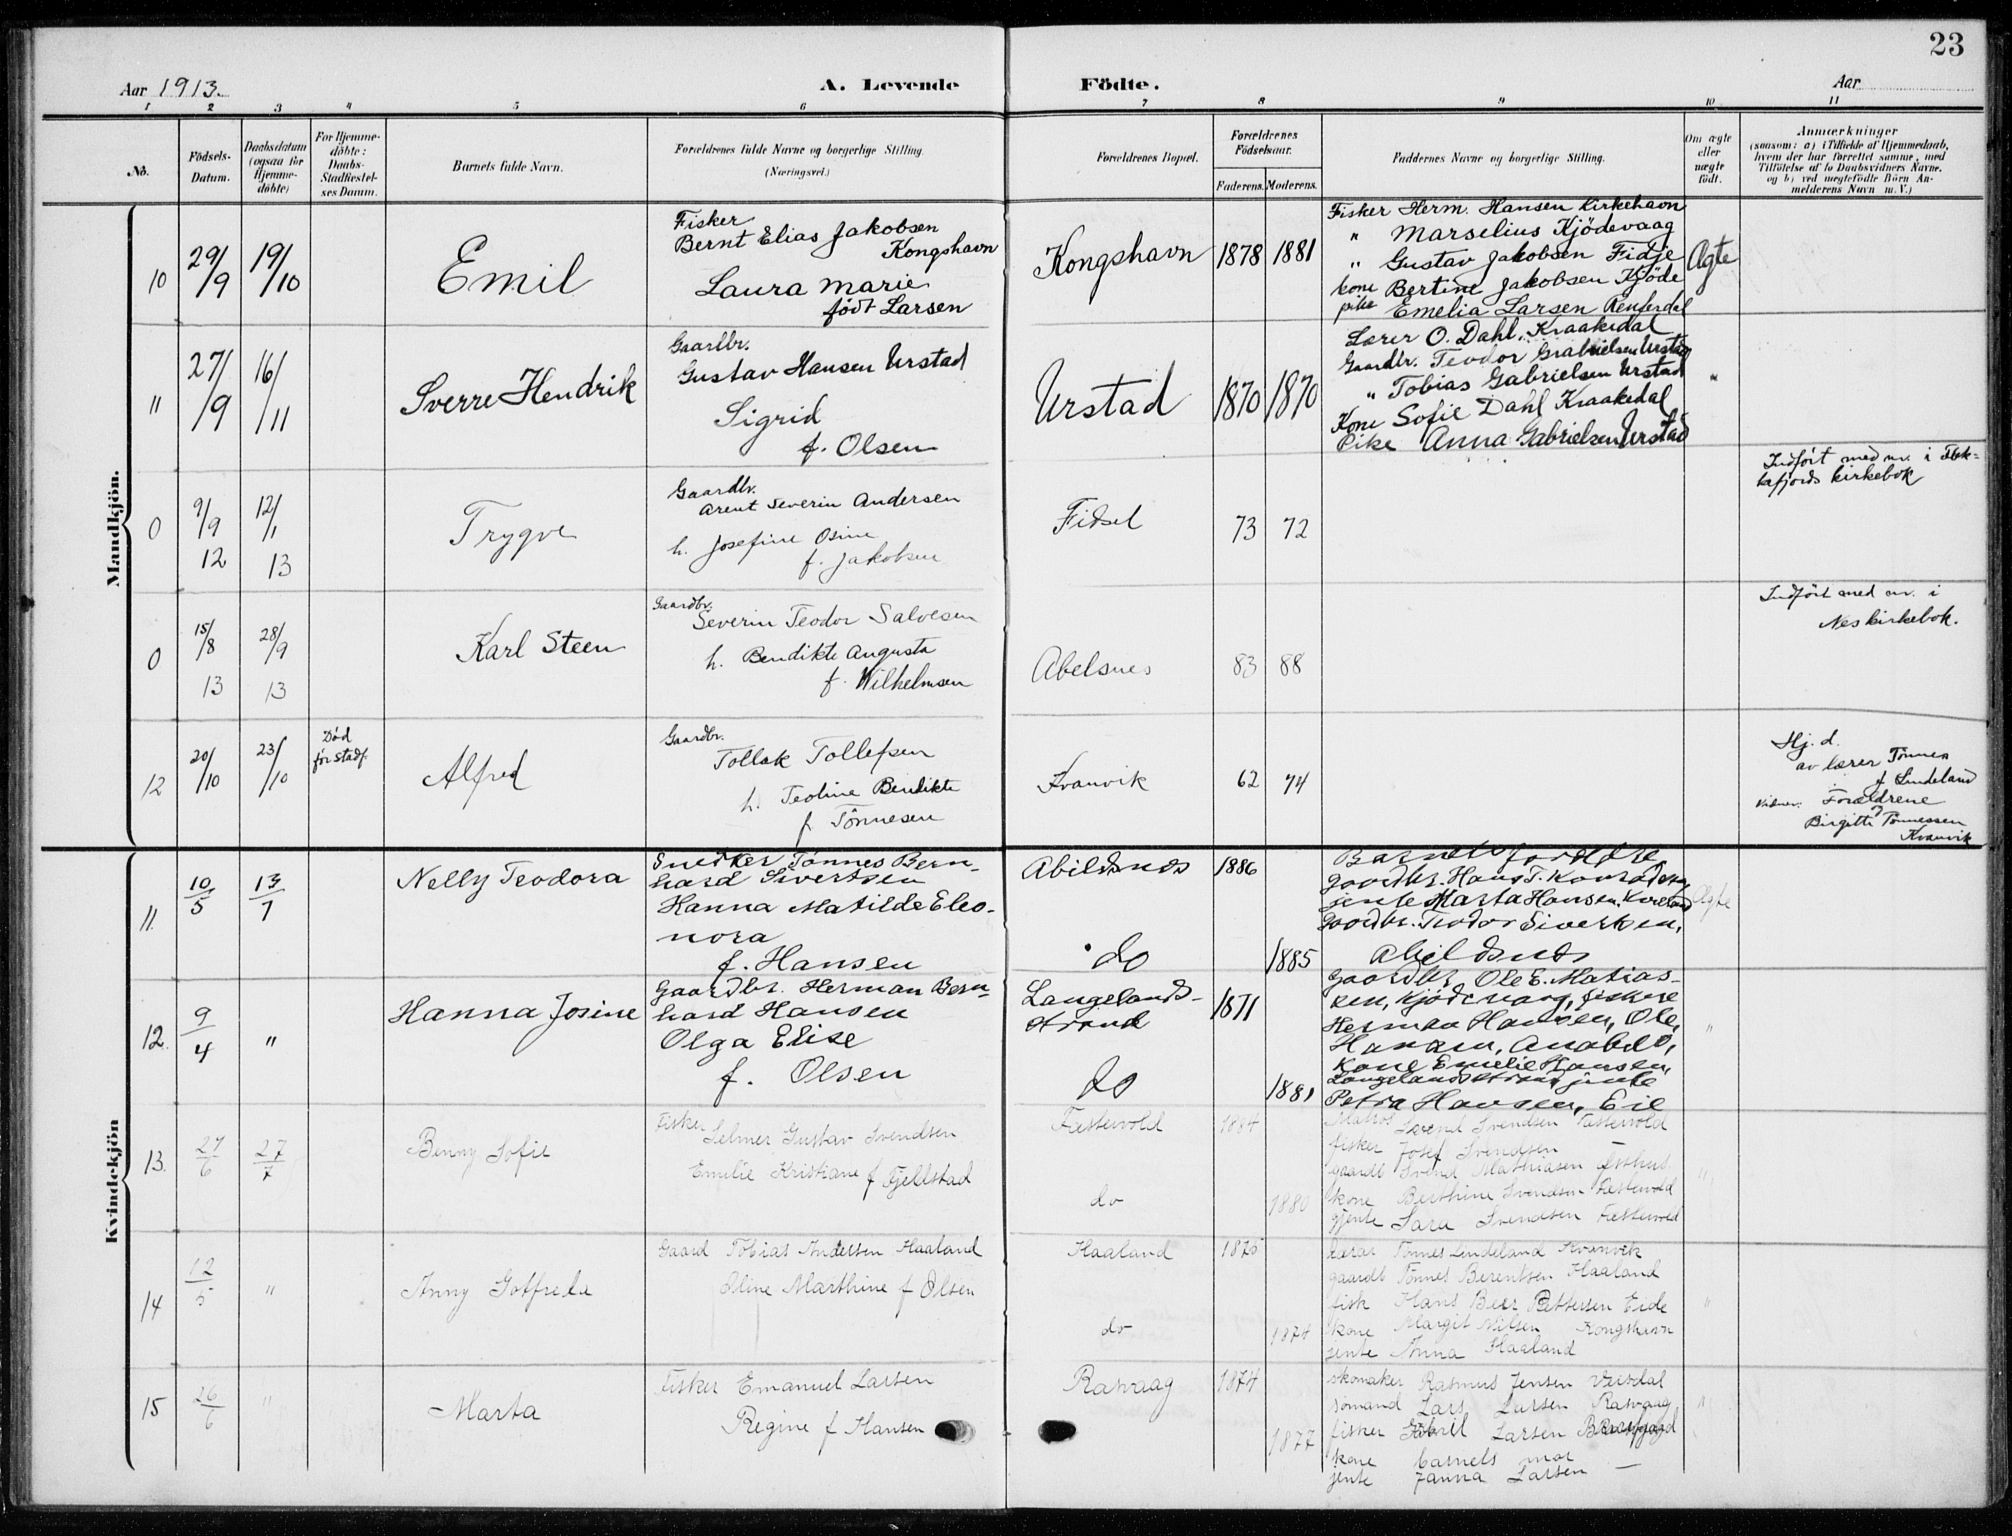 23
Aar 1913. A. Levende Födte. Aar
1 2 3 4 5 6 7 8 9 10 11
No.
Födsels-Datum.
Daabsdatum (ogsaa for Hjemme-döbte)
For Hjemme-döbte: Daabs-Stadfæstel-ses Datum.
Barnets fulde Navn.
Forældrenes fulde Navne og borgerlige Stilling. (Næringsvei.)
Forældrenes Bopæl.
Forældrenes Födselsaar.
Faderens. Moderens.
Faddernes Navne og borgerlige Stilling.
Om ægte eller uægte födt.
Anmærkninger
(saasom: a) i Tilfælde af Hjemmedaab,
hvem der har forrettet samme, med
Tilföielse af to Daabsvidners Navne.
og b) ved uægtefödte Börn An-
melderens Navn m. V.)
Mandkjön.
10 29/9 19/10 Emil
Fisker
Bernt Elias Jakobsen
Kongshavn
Laura Marie
født Larsen
Kongshavn 1878 1881
Fisker Herm. Hansen Kirkehavn
" Marselius Kjödevaag
" Gustav Jakobsen Fidje
kone Bertine Jakobsen Kjöde
pike Emelia Larsen
Ægte
11 27/9 16/11 Sverre Hendrik
Gaardbr.
Gustav Hansen Urstad
Sigrid
f. Olsen
Urstad 1870 1870
Lærer O. Dahl, Kraakedal
Gaardbr. Teodor Gabrielsen Urstad
" Tobias Gabrielsen Urstad
Kone Sofie Dahl Kraakedal
Pike Anna Gabrielsen Urstad
"
0 9/9 12 12/1 13 Trygve
Gaardbr.
Arent Severin Andersen
h. Josefine Osine
f. Jakobsen
Fidsel 73 72
Indført med nr. i Flek-
kefjords kirkebok
0 15/8 13 28/9 13 Karl Steen
Gaardbr.
Severin Teodor Salvesen
h. Bendikte Augusta
f. Wilhelmsen
Abelsnes 83 88
Indført med nr. i
Nes kirkebok.
12 20/10 23/10 Død
før stadf.
Alfred
Gaardbr.
Tollak Tollefsen
h. Teoline Bendikte
f Tönnesen
Kvanvik 62 74
Hj. d.
av lærer Tønnes
f Lindeland
Vidner: Forældrene
Birgitte Tönnessen
Kvanvik
Kvindekjön
11. 10/5 13/7 Nelly Teodora
Snedker Tønnes Bern-
hard Sivertsen
Hanna Matilde Eleo-
nora
f. Hansen
Abildsnes 1886
do 1885
Barnets forældre
gaardbr. Hans T.
jente Marta Hansen,
gaardbr. Teodor Sivertsen,
Abildsnes
Ægte
12. 9/4 " Hanna Josine
Gaardbr. Herman Bern-
hard Hansen
Olga Elise
f. Olsen
Langelands-
strand 1871
do 1881
Gaardbr. Ole E. Matias-
sen, Kjödevaag, fiskere
Herman Hansen, Ole
Hansen,
kone Emelie Hansen,
Langelandsstrand, jente
Petra Hansen, Eie
"
13. 27/6 27/7 Benny Sofie
Fisker Selmer Gustav Svendsen
Emelie Kristiane f Fjellstad
Fæstervold 1884
do 1880
Matros Svend Svendsen Fæstervold
fisker Josef Svendsen —
gaardb Svend Mathiasen
kone Berthine Svendsen Fæstervold
gjente Sara Svendsen Fæstervold
"
14 12/5 " Anny Gotfreda
Gaard Tobias Andersen Haaland
Oline Marthine f Olsen
Haaland 1876
do 1874
Lærer Tönnes Lindeland Kvanvik
gaardb Tönnes Berentsen Haaland
fisk Hans Beer Pettersen Eide
kone Margit Nilsen Kongshavn
jente Anna Haaland
"
15 26/6 " Marta
Fisker Emanuel Larsen
Regine f Hansen
Rasvaag 1874
1877
skomaker Rasmus Jensen
sömand Lars Larsen Rasvaag
fisker Gabriel Larsen Rasvaag
kone barnets mor
jente Janna Larsen —
"